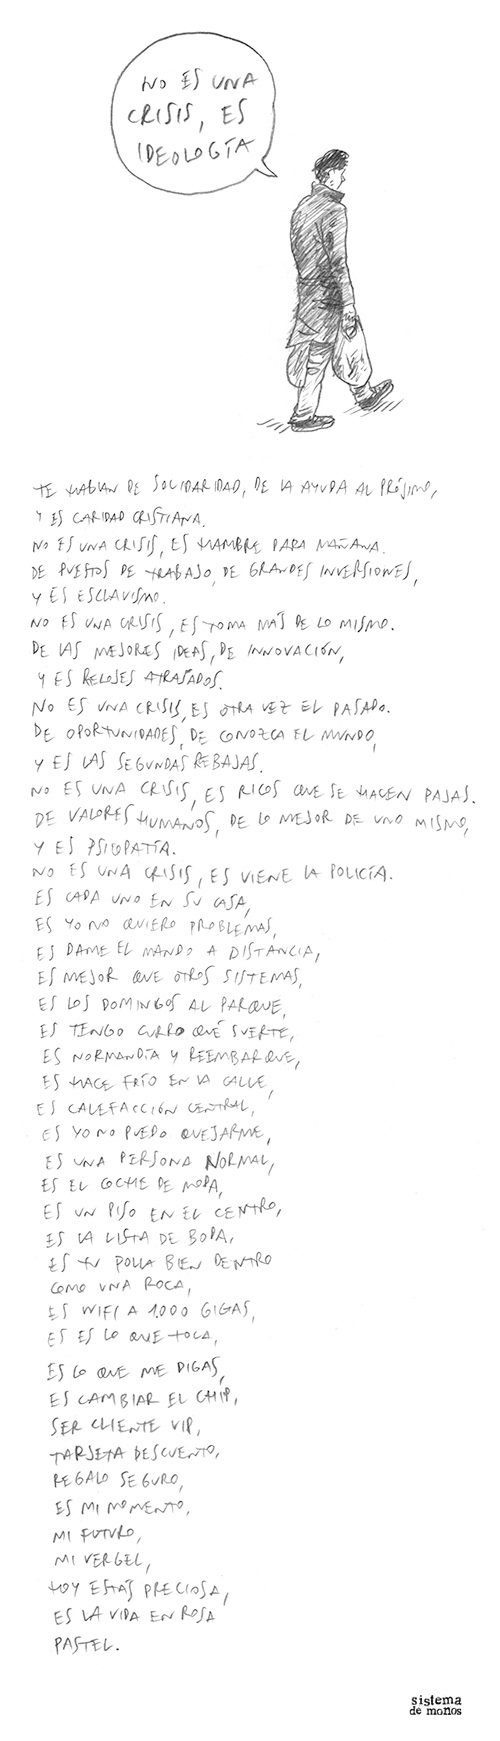 NO ES UNA
CRISIS, ES
IDEOLOGÍA
TE HABLAN DE SOLIDARIDAD, DE LA AYUDA AL PRÓJIMO,
Y ES CARIDAD CRISTIANA.
NO ES UNA CRISIS, ES HAMBRE PARA MAÑANA.
DE PUESTOS DE TRABAJO, DE GRANDES INVERSIONES,
Y ES ESCLAVISMO.
NO ES UNA CRISIS, ES TOMA MÁS DE LO MISMO.
DE LAS MEJORES IDEAS, DE INNOVACIÓN,
Y ES RELOJES ATRASADOS.
NO ES UNA CRISIS, ES OTRA VEZ EL PASADO.
DE OPORTUNIDADES, DE CONOZCA EL MUNDO,
Y ES LAS SEGUNDAS REBAJAS.
NO ES UNA CRISIS, ES RICOS QUE SE HACEN PAJAS.
DE VALORES HUMANOS, DE LO MEJOR DE UNO MISMO,
Y ES PSICOPATÍA.
NO ES UNA CRISIS, ES VIENE LA POLICÍA.
ES CADA UNO EN SU CASA,
ES YO NO QUIERO PROBLEMAS,
ES DAME EL MANDO A DISTANCIA,
ES MEJOR QUE OTROS SISTEMAS,
ES LOS DOMINGOS AL PARQUE,
ES TENGO CURRO QUÉ SUERTE,
ES NORMANDÍA Y REEMBARQUE,
ES HACE FRÍO EN LA CALLE,
ES CALEFACCIÓN CENTRAL,
ES YO NO PUEDO QUEJARME,
ES UNA PERSONA NORMAL,
ES EL COCHE DE MODA,
ES UN PISO EN EL CENTRO,
ES LA LISTA DE BODA,
ES TU POLLA BIEN DENTRO
COMO UNA ROCA,
ES WIFI A 1.000 GIGAS,
ES ES LO QUE TOCA,
ES LO QUE ME DIGAS,
ES CAMBIAR EL CHIP,
SER CLIENTE VIP,
TARJETA DESCUENTO,
REGALO SEGURO,
ES MI MOMENTO,
MI FUTURO,
MI VERGEL,
HOY ESTÁS PRECIOSA,
ES LA VIDA EN ROSA
PASTEL.
sistema
de monos